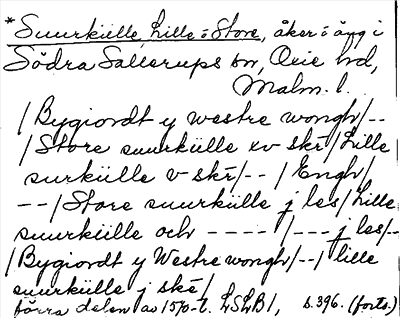 *Suurkiille, Lille o Store, åker o äng i
Södra Sallerups sn, Oxie hd,
Malm. l.
/Bygiordt y westre wongh/--
/Store suurkiille xv skr̃/Lille
surkiille v skr̃/--/Engh/
--/Store suurkiille j les/Lille
suurkiille och ---- /---j les/--
/Bygiordt y Westre wongh/--/lille
suurkiille j skr̃/
förra delen av 1570-t. LSLB1, s. 396. (forts.)